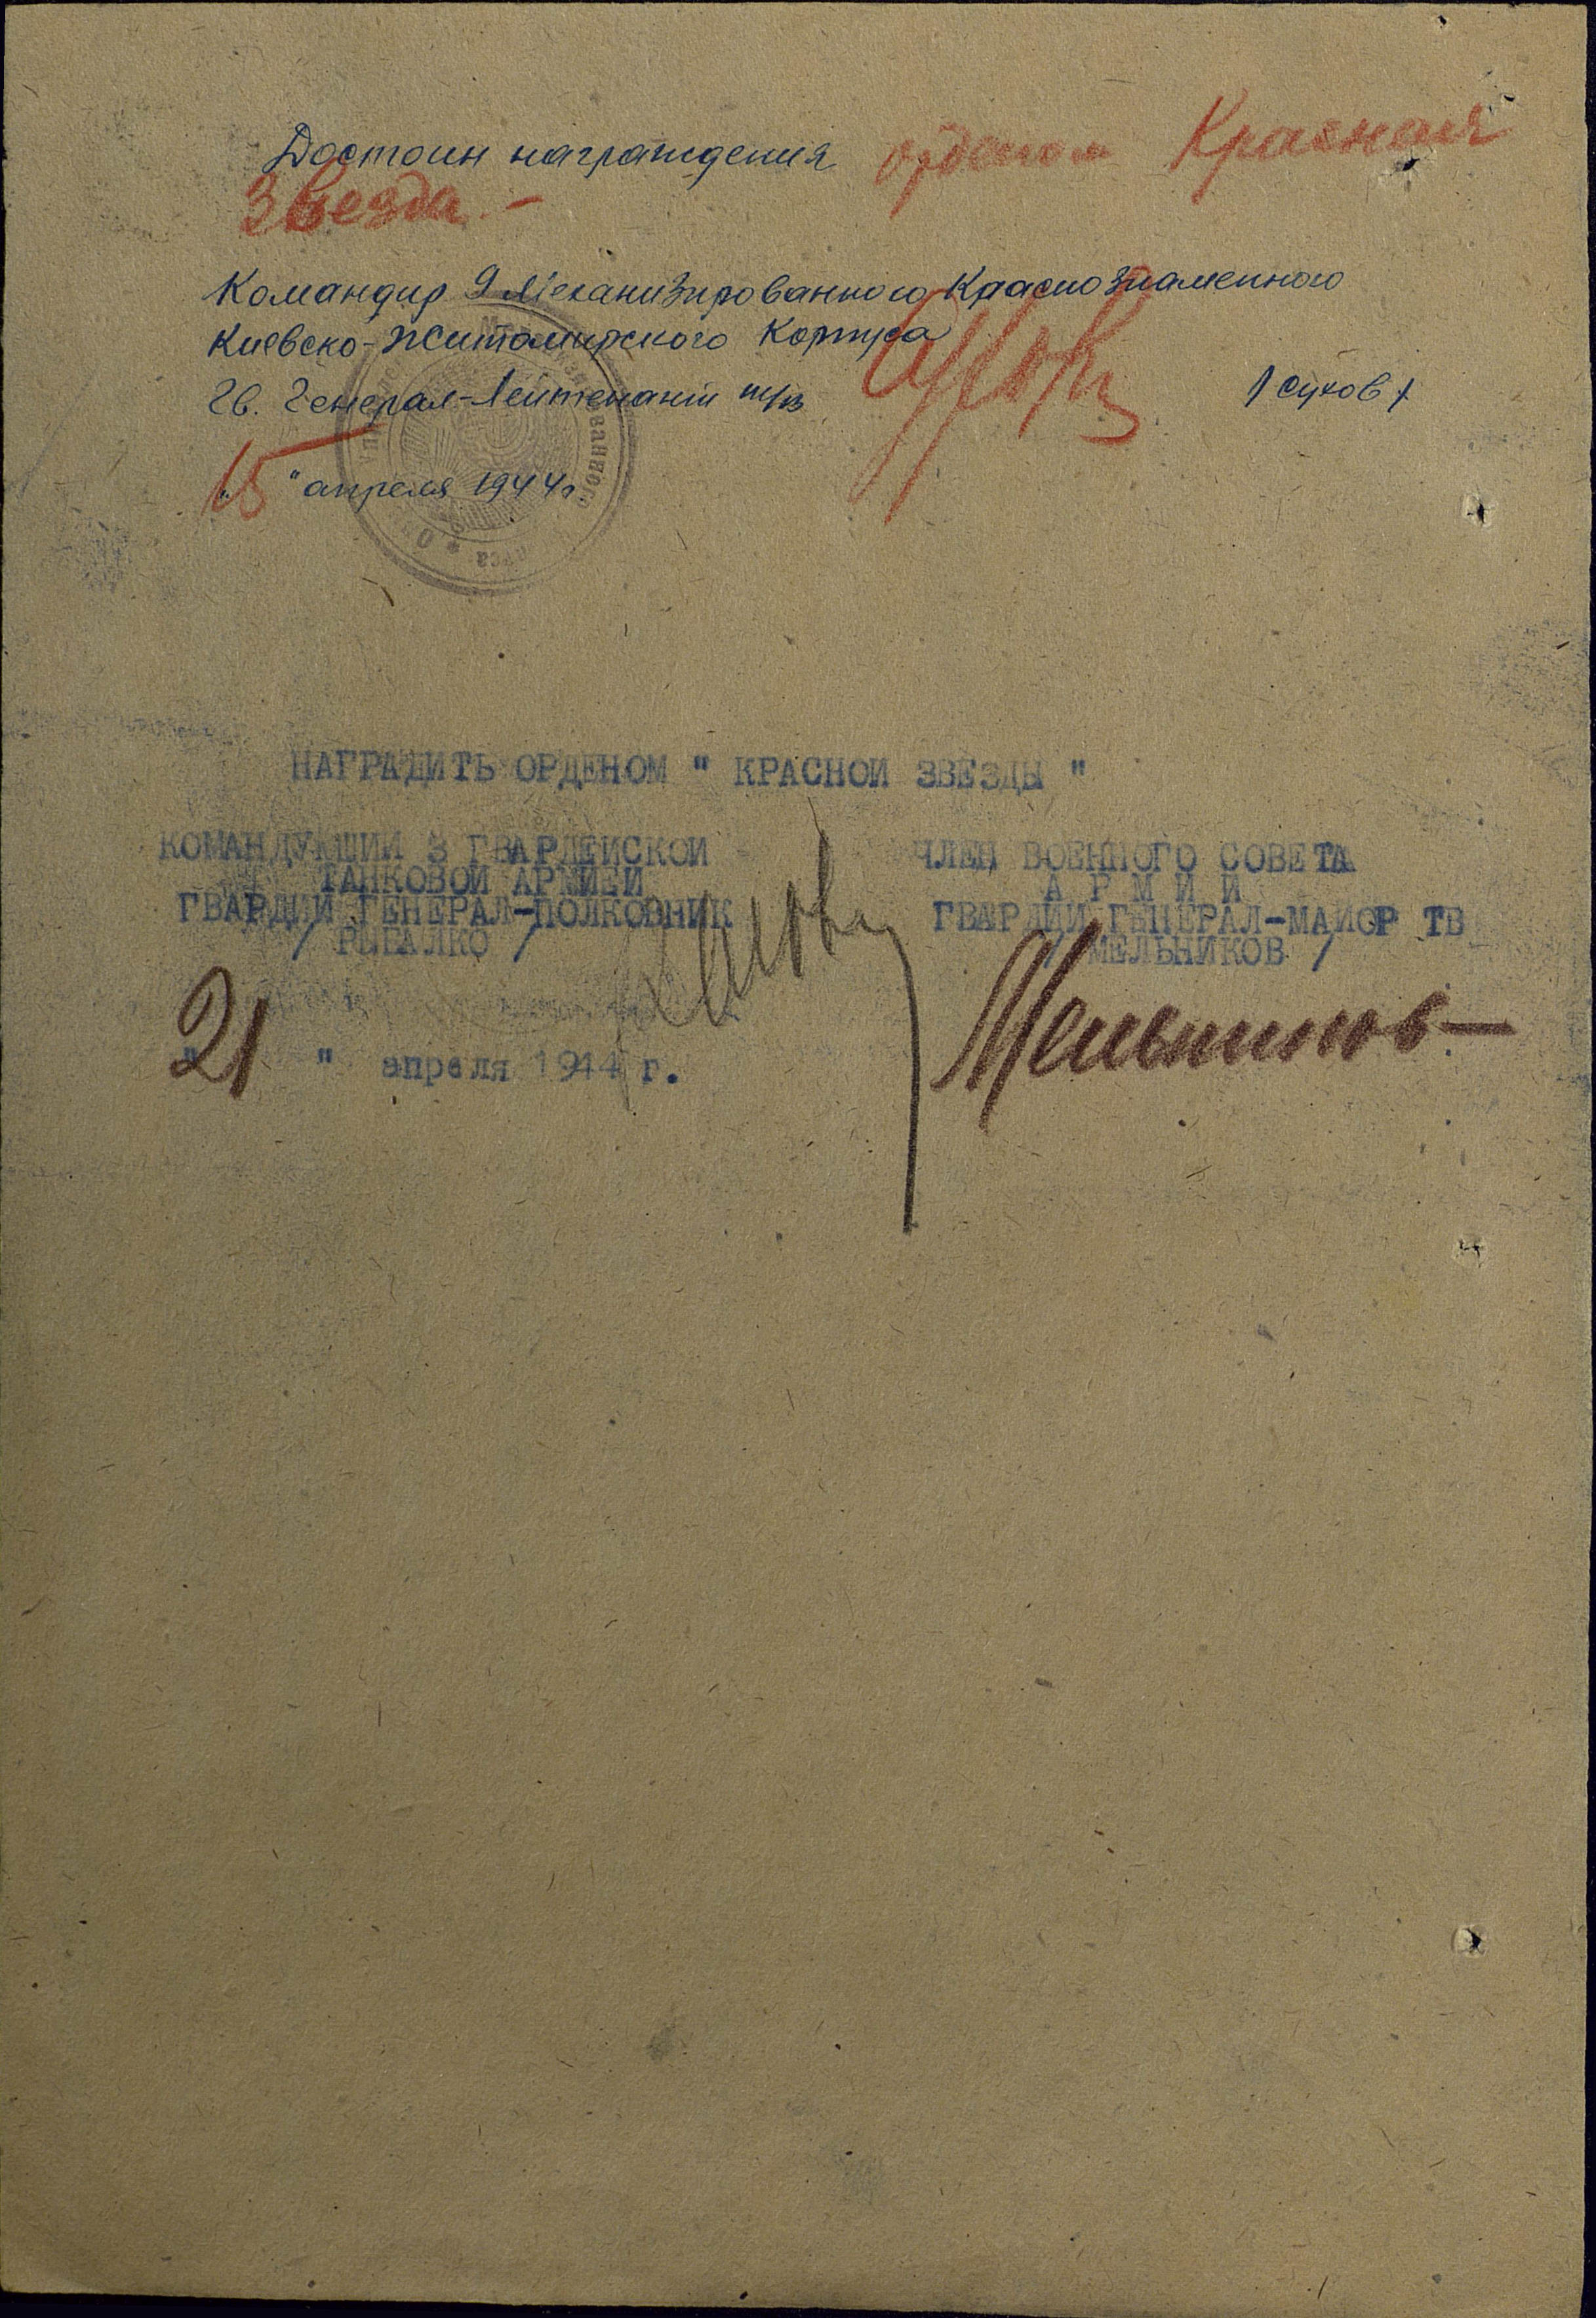 Достоин награждения орденом Красная
Звезда. –
Командир 9 Механизированного Краснознаменного
Киевско-Житомирского Корпуса
Гв. Генерал-Лейтенант т/в / Сухов /
Сухов
"15" апреля 1944 г.
НАГРАДИТЬ ОРДЕНОМ " КРАСНОЙ ЗВЕЗДЫ "
КОМАНДУЮЩИЙ 3 ГВАРДЕЙСКОЙ
ТАНКОВОЙ АРМИЕЙ
ГВАРДИИ ГЕНЕРАЛ-ПОЛКОВНИК
/ РЫБАЛКО /
"21" апреля 1944 г.
ЧЛЕН ВОЕННОГО СОВЕТА
АРМИИ
ГВАРДИИ ГЕНЕРАЛ-МАЙОР ТВ
/ МЕЛЬНИКОВ /
Мельников